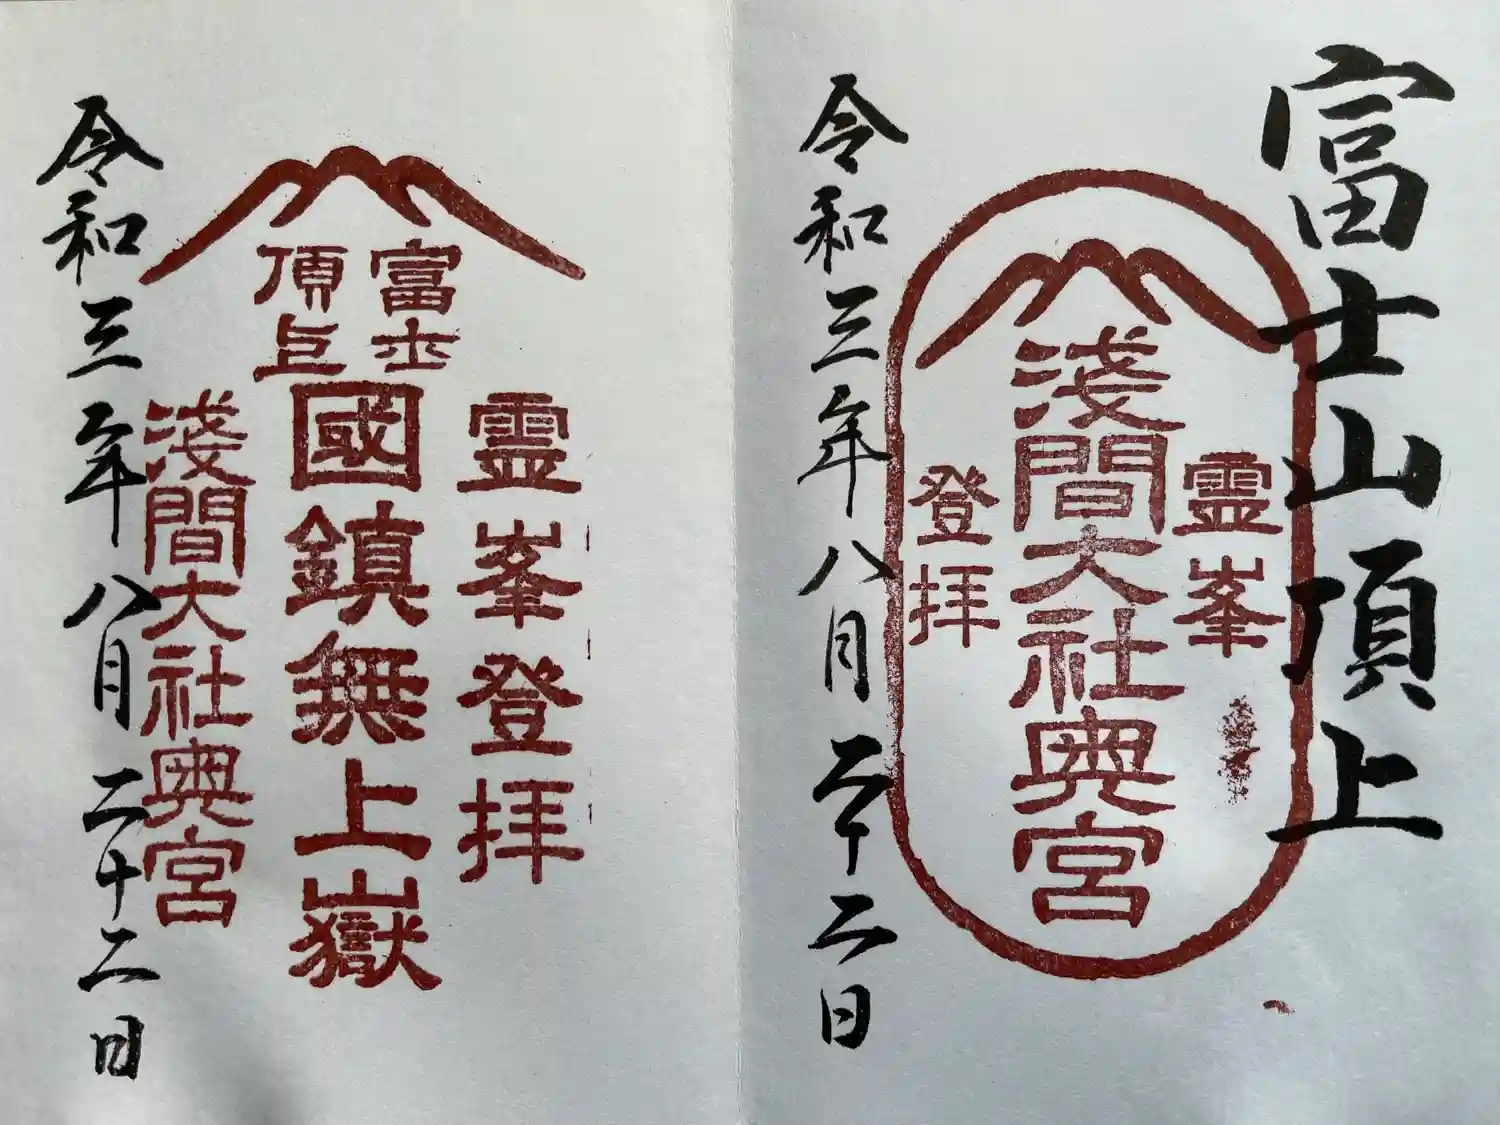 富士山頂上
霊峯
淺間大社奥宮
登拝
令和三年八月二十二日
富士
頂上
霊峯登拝
國鎮無上嶽
淺間大社奥宮
令和三年八月二十二日